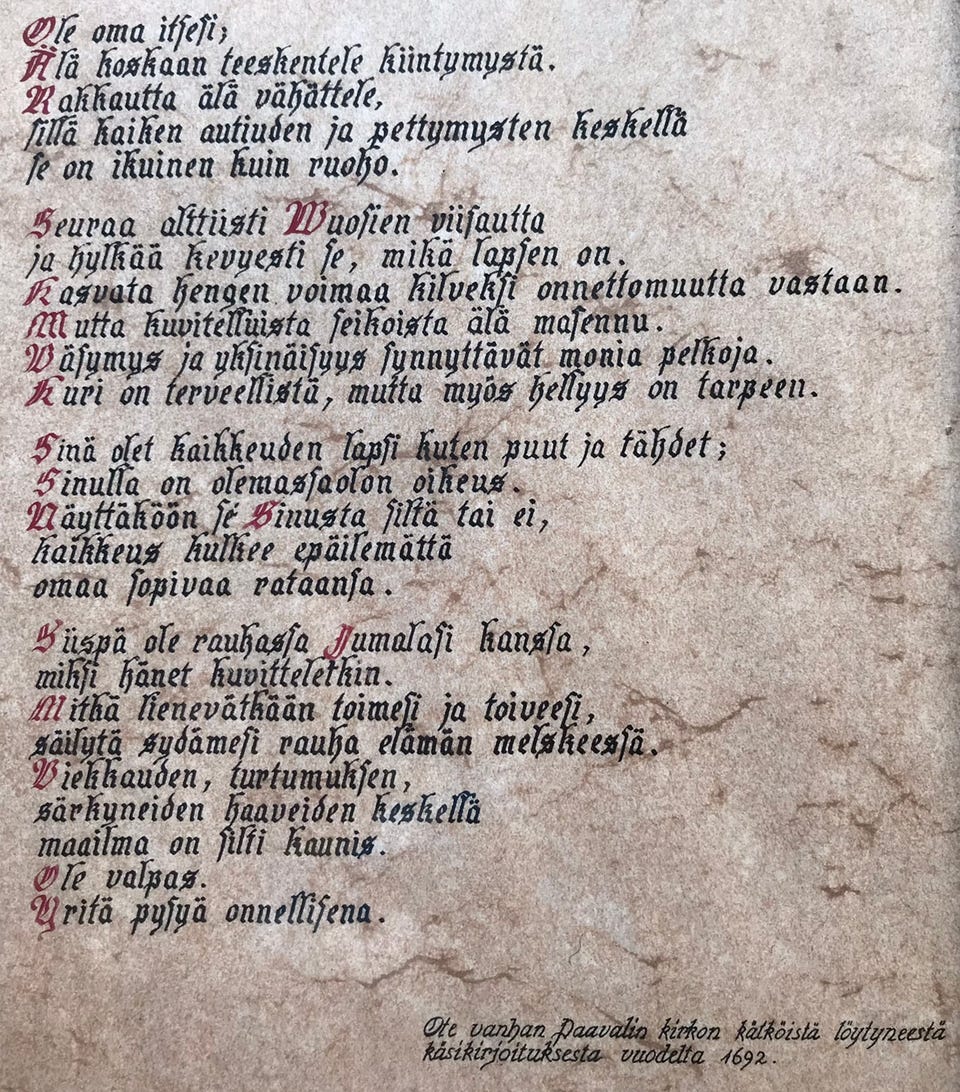 Ole oma itsesi;
Älä koskaan teeskentele kiintymystä.
Rakkautta älä vähättele,
sillä kaiken autiuden ja pettymysten keskellä
se on ikuinen kuin ruoho.
Seuraa alttiisti Wuosien viisautta
ja hylkää kevyesti se, mikä lapsen on.
Kasvata hengen voimaa kilveksi onnettomuutta vastaan.
Mutta kuvitelluista seikoista älä masennu.
Väsymys ja yksinäisyys synnyttävät monia pelkoja.
Kuri on terveellistä, mutta myös hellyys on tarpeen.
Sinä olet kaikkeuden lapsi kuten puut ja tähdet;
Sinulla on olemassaolon oikeus.
Näyttäköön se Sinusta siltä tai ei,
kaikkeus kulkee epäilemättä
omaa sopivaa rataansa.
Siispä ole rauhassa Jumalasi kanssa,
miksi hänet kuvitteletkin.
Mitkä lienevätkään toimesi ja toiveesi,
säilytä sydämesi rauha elämän melskeessä.
Viekkauden, turtumuksen,
särkyneiden haaveiden keskellä
maailma on silti kaunis.
Ole valpas.
Yritä pysyä onnellisena.
Ote vanhan Paavalin kirkon kätköistä löytyneestä
käsikirjoituksesta vuodelta 1692.